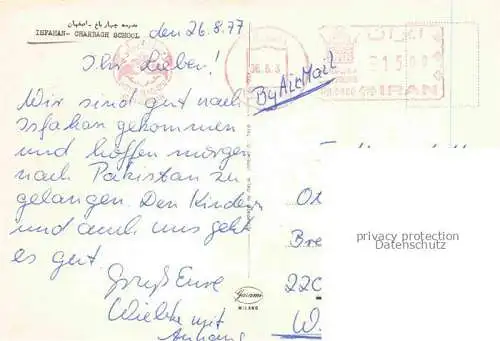 مدرسه چهار باغ - اصفهان
ISFAHAN - CHARBAGH SCHOOL
den 26.8.77
Ihr Lieben!
Wir sind gut nach
Isfahan gekommen
und hoffen morgen
nach Pakistan zu
gelangen. Den Kindern
und auch uns geht
es gut.
Gruß Eure
Wiebke mit
Anhang
By Air Mail
ایران
IRAN
privacy protection
Datenschutz
Bre
220
W.
MILANO